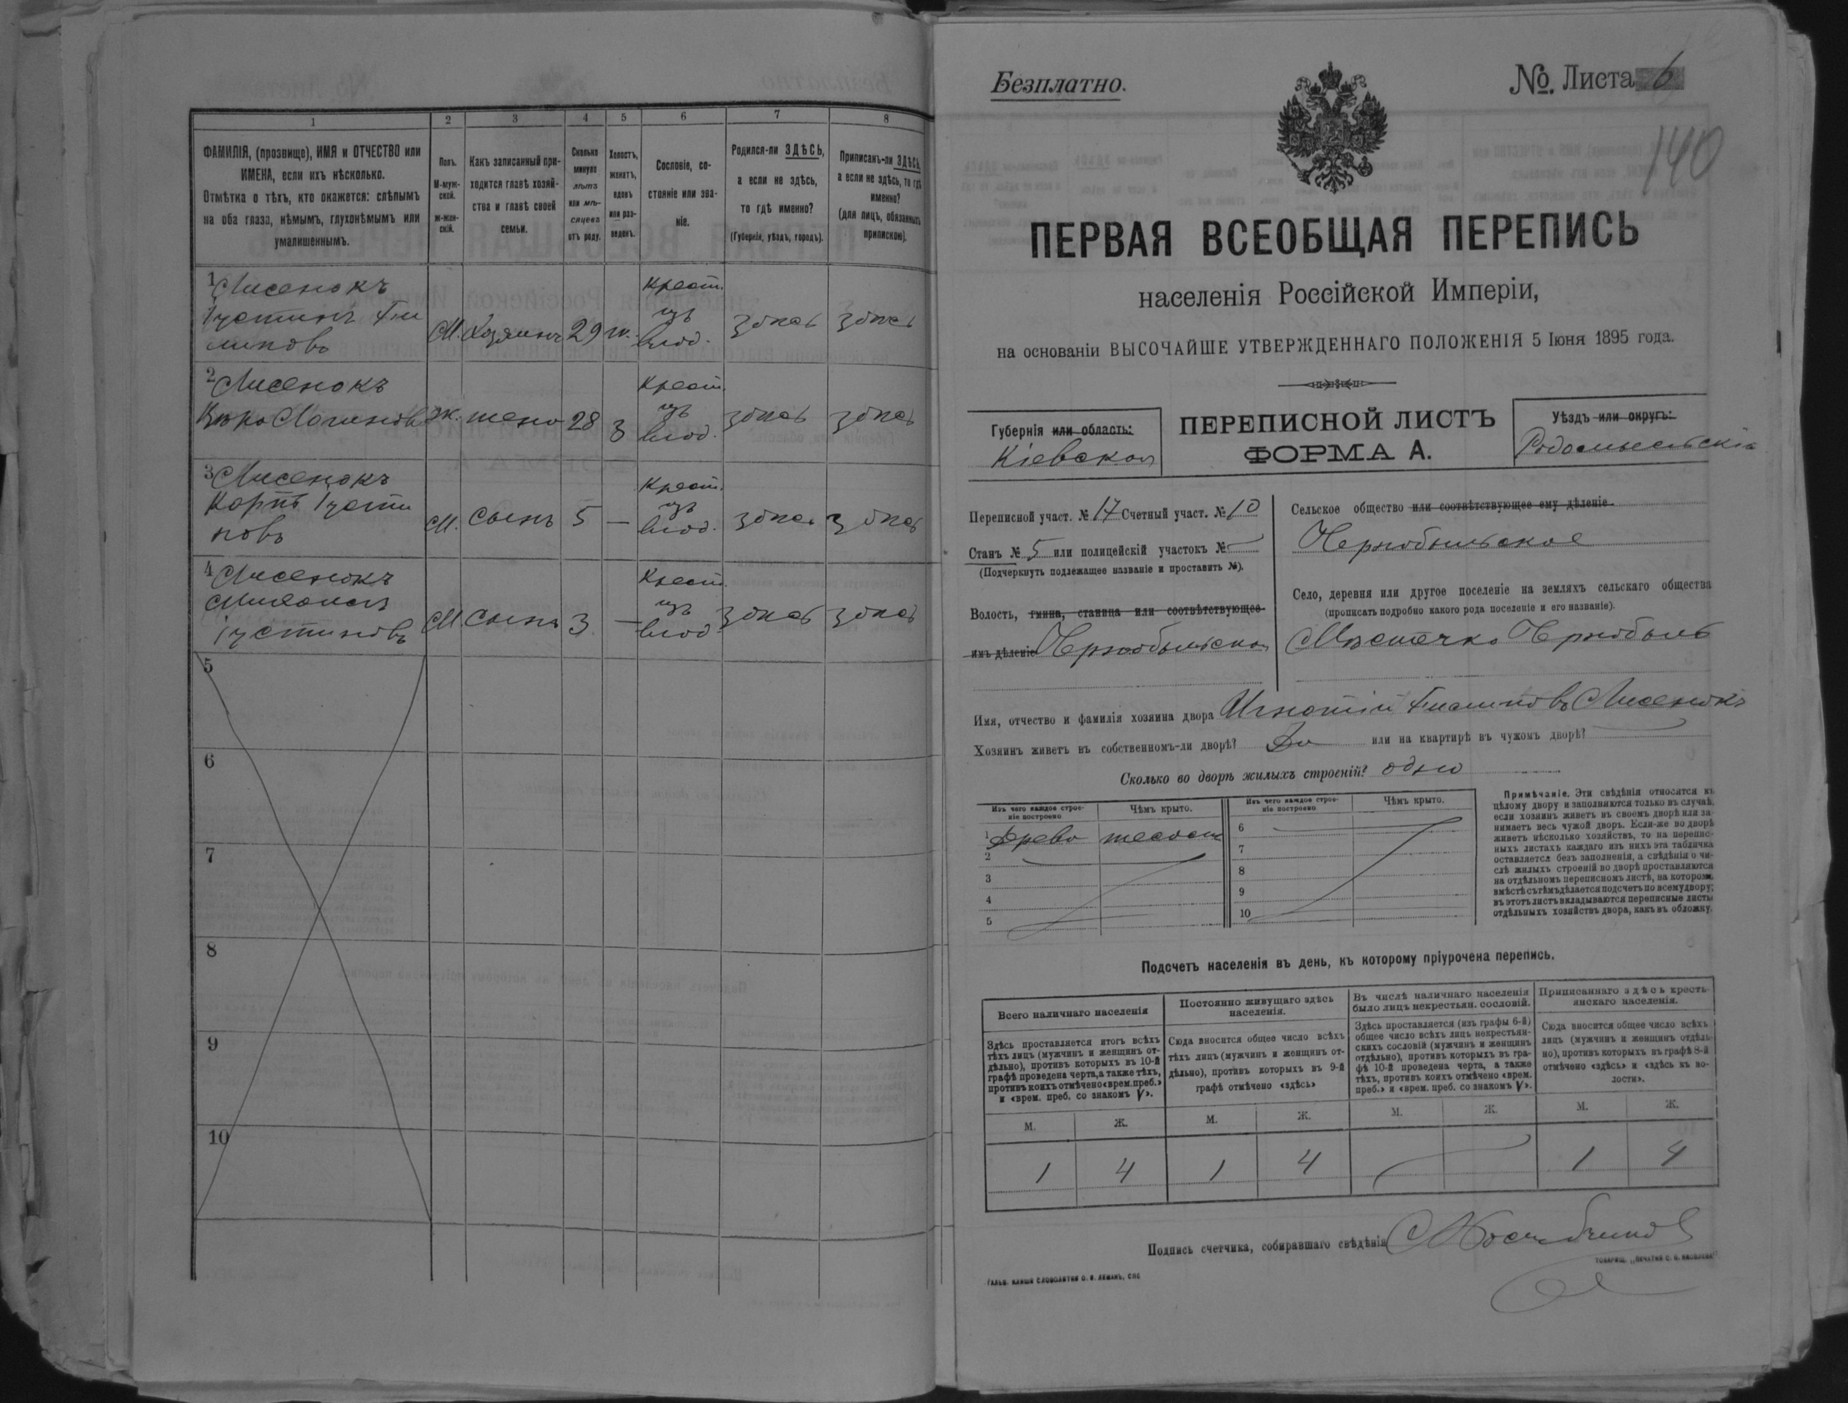 1
2
3
4
5
6
7
8
ФАМИЛІЯ, (прозвище), ИМЯ и ОТЧЕСТВО или
ИМЕНА, если ихъ нѣсколько.
Отмѣтка о тѣхъ, кто окажется: слѣпымъ
на оба глаза, нѣмымъ, глухонѣмымъ или
умалишеннымъ.
Полъ.
М-муж-
ской.
Ж-жен-
скій.
Какъ записанный при-
ходится главѣ хозяй-
ства и главѣ своей
семьи.
Сколько
минуло
лѣтъ
или мѣ-
сяцевъ
отъ роду.
Холостъ,
женатъ,
вдовъ
или раз-
веденъ.
Сословіе, со-
стояніе или зва-
ніе.
Родился-ли ЗДѢСЬ,
а если не здѣсь,
то гдѣ именно?
(Губернія, уѣздъ, городъ).
Приписанъ-ли ЗДѢСЬ,
а если не здѣсь, то гдѣ
именно?
(для лицъ, обязанныхъ
припискою).
1 Лисенокъ
Іустинъ Фи
липовъ
М. Хозяинъ 29 ж.
Крест.
изъ
влад.
здѣсь здѣсь
2 Лисенокъ
Логинова ж. жена 28 з
Крест.
изъ
влад.
здѣсь здѣсь
3 Лисенокъ
Карпъ Іусти
новъ
М. сынъ 5 —
Крест.
изъ
влад.
здѣсь здѣсь
4 Лисенокъ
Іустиновъ
М. сынъ 3 —
Крест.
изъ
влад.
здѣсь здѣсь
5
6
7
8
9
10
Безплатно.
№. Листа 6
140
ПЕРВАЯ ВСЕОБЩАЯ ПЕРЕПИСЬ
населенія Россійской Имперіи,
на основаніи ВЫСОЧАЙШЕ УТВЕРЖДЕННАГО ПОЛОЖЕНІЯ 5 Іюня 1895 года.
Губернія или область:
Кіевская
ПЕРЕПИСНОЙ ЛИСТЪ
ФОРМА А.
Уѣздъ или округъ:
Радомысльскій
Переписной участ. № 17 Счетный участ. № 10
Станъ № 5 или полицейскій участокъ № —
(Подчеркнуть подлежащее названіе и проставить №).
Волость, гмина, станица или соотвѣтствующее
имъ дѣленіе Чернобыльская
Сельское общество или соотвѣтствующее ему дѣленіе
Чернобыльское
Село, деревня или другое поселеніе на земляхъ сельскаго общества
(прописать подробно какого рода поселеніе и его названіе).
Мѣстечко Чернобыль
Имя, отчество и фамилія хозяина двора Игнатій Филиповъ Лисенокъ
Хозяинъ живетъ въ собственномъ-ли дворѣ? Да или на квартирѣ въ чужомъ дворѣ? —
Сколько во дворѣ жилыхъ строеній? одно
Изъ чего каждое строе-
ніе построено
Чѣмъ крыто.
Изъ чего каждое строе-
ніе построено
Чѣмъ крыто.
1 Древо
2
3
4
5
6
7
8
9
10
Примѣчаніе. Эти свѣдѣнія относятся къ
цѣлому двору и заполняются только въ случаѣ,
если хозяинъ живетъ въ своемъ дворѣ или за-
нимаетъ весь чужой дворъ. Если-же во дворѣ
живетъ нѣсколько хозяйствъ, то на перепис-
ныхъ листахъ каждаго изъ нихъ эта табличка
оставляется безъ заполненія, а свѣдѣнія о чи-
слѣ жилыхъ строеній во дворѣ проставляются
на отдѣльномъ переписномъ листѣ, на которомъ
вмѣстѣ съ тѣмъ дѣлается подсчетъ по всему двору;
въ этотъ листъ вкладываются переписные листы
отдѣльныхъ хозяйствъ двора, какъ въ обложку.
Подсчетъ населенія въ день, къ которому пріурочена перепись.
Всего наличнаго населенія
Постоянно живущаго здѣсь
населенія.
Въ числѣ наличнаго населенія
было лицъ некрестьян. сословій.
Приписаннаго здѣсь кресть-
янскаго населенія.
Здѣсь проставляется итогъ всѣхъ
тѣхъ лицъ (мужчинъ и женщинъ от-
дѣльно), противъ которыхъ въ 10-й
графѣ проведена черта, а также тѣхъ,
противъ коихъ отмѣчено «врем. преб.»
и «врем. преб. со знакомъ V».
Сюда вносится общее число всѣхъ
тѣхъ лицъ (мужчинъ и женщинъ от-
дѣльно), противъ которыхъ въ 9-й
графѣ отмѣчено «здѣсь»
Здѣсь проставляется (изъ графы 6-й)
общее число всѣхъ лицъ некрестьян-
скихъ сословій (мужчинъ и женщинъ
отдѣльно), противъ которыхъ въ гра-
фѣ 10-й проведена черта, а также
тѣхъ, противъ коихъ отмѣчено «врем.
преб.» и «врем. преб. со знакомъ V».
Сюда вносится общее число всѣхъ
лицъ (мужчинъ и женщинъ отдѣль-
но), противъ которыхъ въ графѣ 8-й
отмѣчено «здѣсь» и «здѣсь въ во-
лости».
М. Ж. М. Ж. М. Ж. М. Ж.
1 4 1 4 1 4
Подпись счетчика, собиравшаго свѣдѣнія